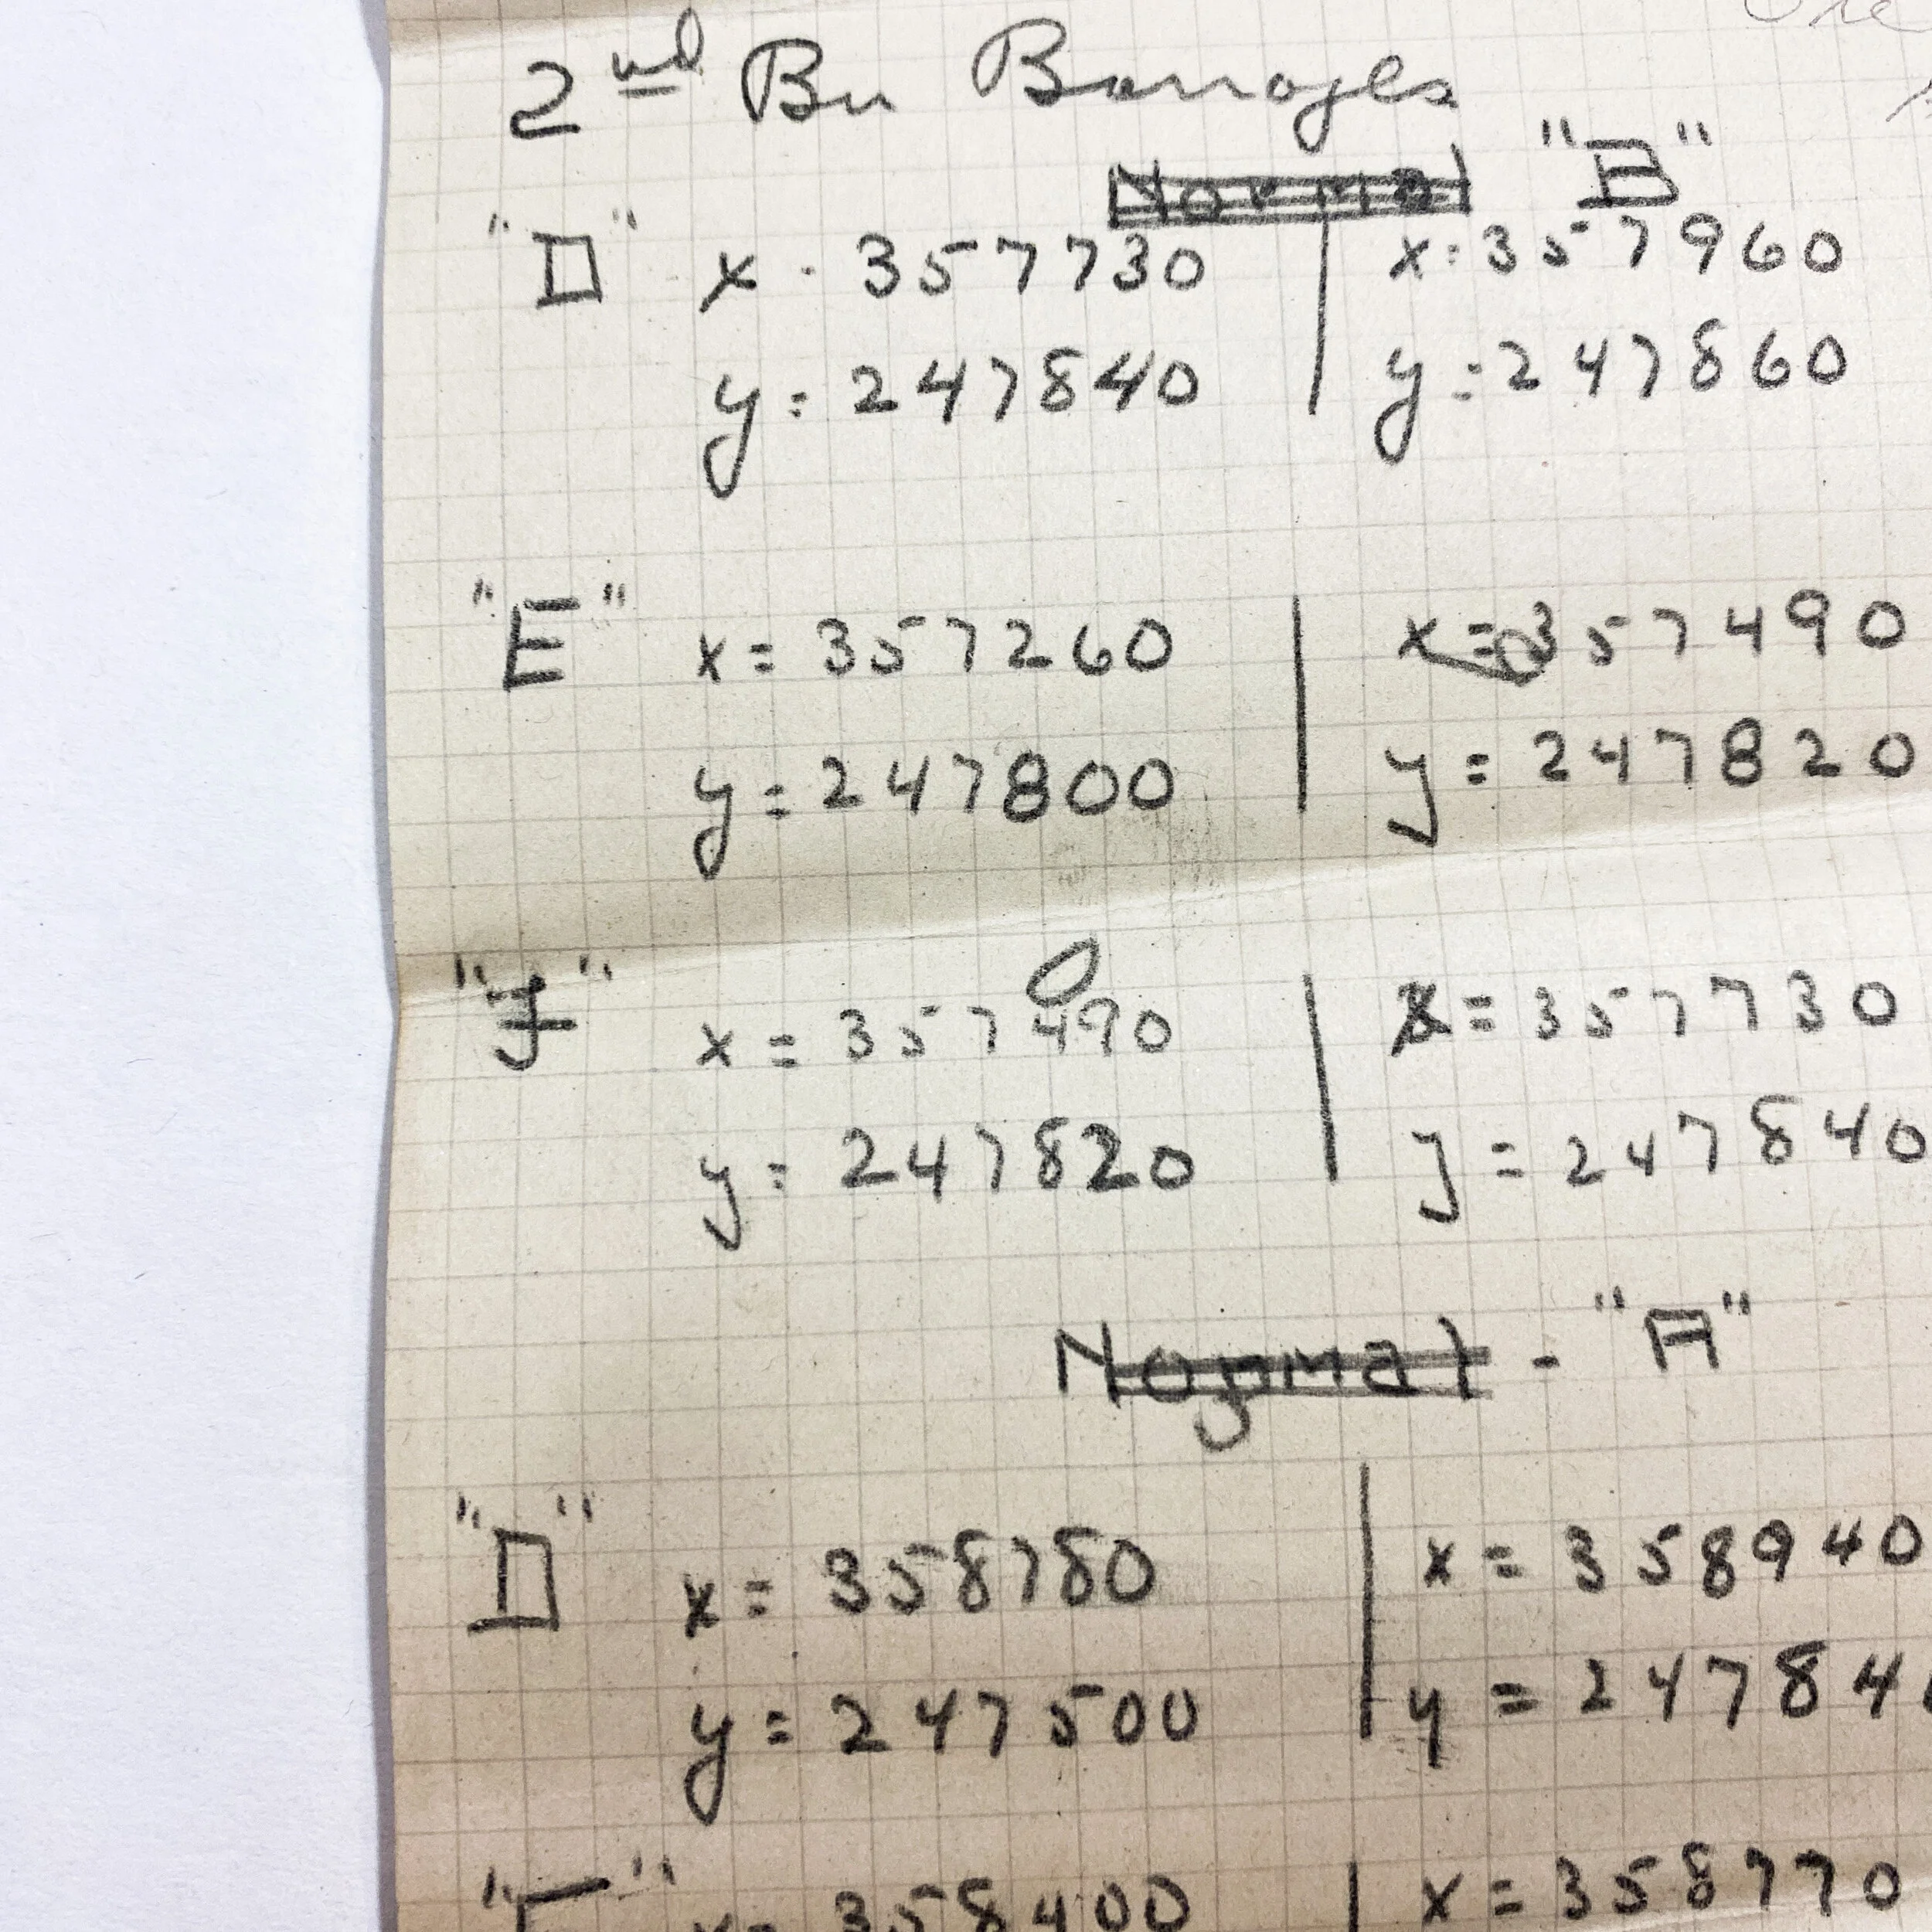 2nd Bn Barrages
Normal "B"
"D" x . 357730 | x : 357960
y : 247840 | y : 247860
"E" x = 357260 | x = 357490
y = 247800 | y = 247820
"F" x = 357490 | x = 357730
y : 247820 | y = 247840
Normal - "A"
"D" x = 358780 | x = 358940
y = 247500 | y = 24784
"E" x = 358400 | x = 358770